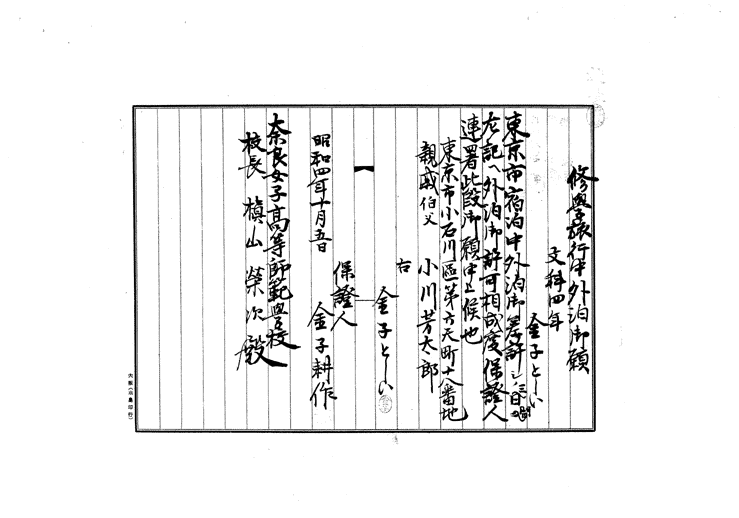 修學旅行中外泊御願
文科四年
金子としい
東京市宿泊中外泊御差許シ三日間
左記ヘ外泊御許可相成度保證人
連署此段御願申上候也
東京市小石川區第六天町十八番地
親戚 伯父 小川芳太郎
右
金子としい
保證人
金子耕作
昭和四年十月五日
奈良女子高等師範學校
校長 槇山榮次殿